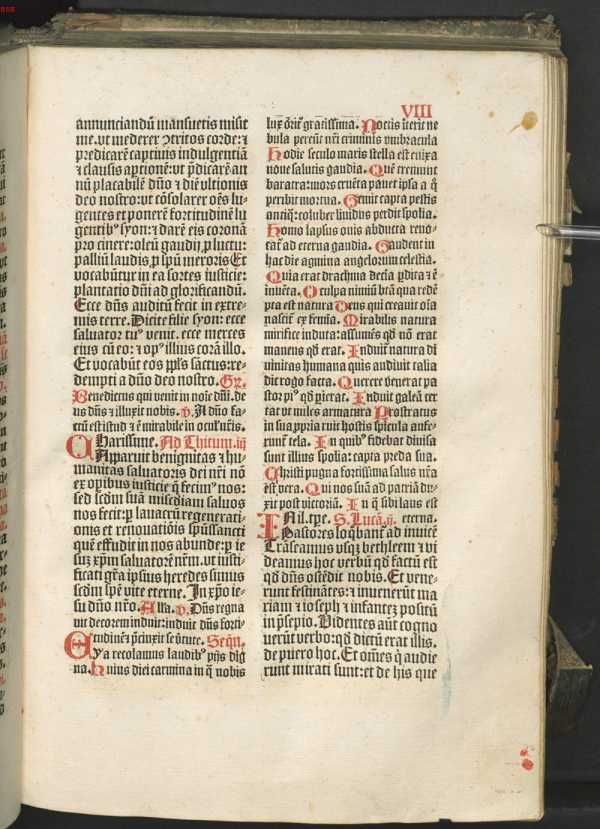 VIII
annunciandū mansuetis misit
me.vt mederer ↄtritos corde:⁊
predicarē captiuis indulgentiā
⁊ clausis aꝑtionē:vt p̄dicarē an
nū placabilē dn̄o ⁊ diē vltionis
deo nostro:vt cōsolarer oēs lu-
gentes et ponerē fortitudinē lu
gentibꝰ syon:⁊ darē eis coronā
ꝓ cinere:oleū gaudij ꝓ luctu:
palliū laudis.ꝓ spū meroris Et
vocabūtur in ea fortes iusticie:
plantatio dn̄i ad glorificandū.
Ecce dn̄s auditū fecit in extre-
mis terre. Dicite filie syon: ecce
saluator tuꝰ venit. ecce merces
eius cū eo: ⁊ opꝰ illius corā illo.
Et vocabūt eos ppl̄s sāctus:re-
dempti a dn̄o deo nostro. Gr.
Benedictus qui venit in noīe dn̄i. de
us dn̄s ⁊ illuxit nobis. v. A dn̄o fa-
ctū est istud ⁊ ē mirabile in oculꝭ nr̄is.
Charissime. Ad Thitum. iij
Apparuit benignitas ⁊ hu-
manitas saluatoris dei nr̄i nō
ex opibus iusticie q̄ fecimꝰ nos:
sed scdm suā miscdiam saluos
nos fecit:ꝑ lauacrū regenerati-
onis et renouatiōis spūssancti
quē effudit in nos abunde:ꝑ ie
suꝫ xp̄m saluatorē nr̄m. vt iusti-
ficati gr̄a ipsius heredes simus
scdm spem vite eterne. In xp̄o ie-
su dn̄o nr̄o. Alla. v. Dn̄s regna
uit decorem induit: induit dn̄s forti-
tudinē p̄cinxit se v̄tute. Seqn̄.
Eya recolamus laudibꝰ pijs dig
na. Huius diei carmina in q̄ nobis
lux orīt gratissima. Noctis īterit ne
bula pereūt nr̄i criminis vmbracula
Hodie seculo maris stella est enixa
noue salutis gaudia. Quē tremunt
baratra:mors cruēta pauet ipsa a q̄
peribit mortua. Gemit capta pestis
antiq̄: coluber liuidus perdit spolia.
Homo lapsus ouis abducta reuo-
cat᷑ ad eterna gaudia. Gaudent in
hac die agmina angelorum celestia.
Quia erat drachma decīa ꝑdita ⁊ ē
inuēta. O culpa nimiū btā qua redē
pta est natura Deus qui creauit oīa
nascit᷑ ex femīa. Mirabilis natura
mirifice induta: assumēs qd̄ nō erat
manens qd̄ erat. Induit᷑ natura di
uinitas humana quis audiuit talia
dic rogo facta. Querere venerat pa
stor piꝰ qd̄ ꝑierat. Induit galeā cer
tat vt miles armatura Prostratus
in sua ꝓpria ruit hostis spicula aufe-
runt᷑ tela. In quibꝰ fidebat diuisa
sunt illius spolia: capta preda sua.
Christi pugna fortissima salus nr̄a
est vera. Qui nos suā ad patriā du-
xit post victoriā. In q̄ sibi laus est
In il. tꝑe. S. Lucā. ij. eterna.
Pastores loqbant᷑ ad inuicē
Trāseamus vsqꝫ bethleem ⁊ vi
deamus hoc verbū qd̄ factū est
qd̄ dn̄s ostēdit nobis. Et vene-
runt festinātes:⁊ inuenerūt ma
riam ⁊ ioseph ⁊ infanteꝫ positū
in p̄sepio. Videntes aūt cogno
uerūt verbo:qd̄ dictū erat illis.
de puero hoc. Et om̄es q̄ audie
runt mirati sunt:et de his que